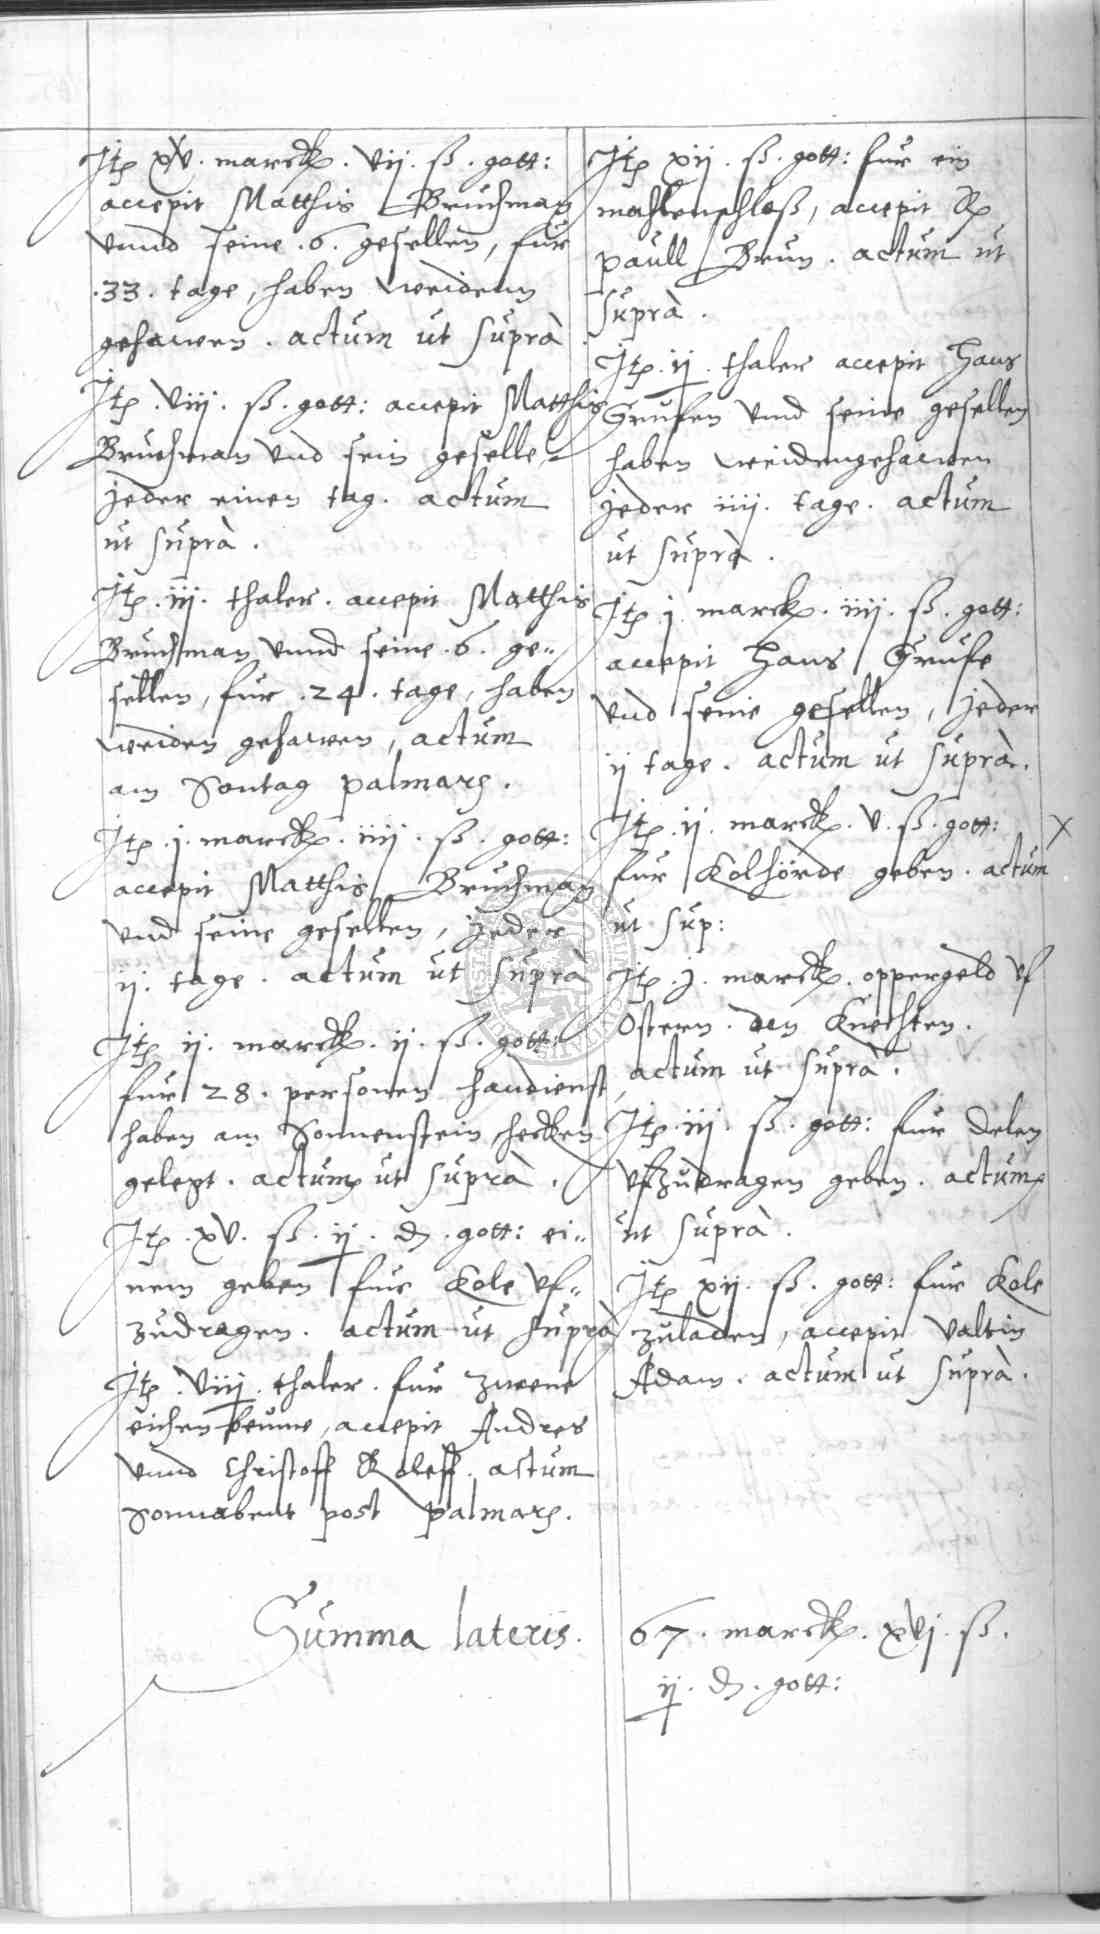 Itē xv. marck. vij. ß. gott:
accepit Matthis Bruchman
vnnd seine .6. gesellen, fur
.33. tage, haben weidenn
gehawen. actum ut suprà
Itē. viij. ß. gott: accepit Matthis
Bruchman vnd sein geselle,
jeder einen tag. actum
ut suprà.
Itē. iij. thaler. accepit Matthis
Bruchman vnnd seine .6. ge-
sellen, fur .24. tage, haben
weiden gehawen, actum
am Sontag palmarum.
Itē. j. marck. iiij. ß. gott:
accepit Matthis Bruchman
vnd seine gesellen, jeder
ij. tage. actum ut suprà
Itē ij. marck. ij. ß. gott:
fur 28. personen handienst,
haben am Sonnenstein hecken
gelegt. actum ut suprà.
Itē. xv. ß. ij. d. gott: ei-
nem geben fur Kole vf-
zudragen. actum ut suprà
Itē. viij. thaler. fur zwene
eichen beume, accepit Andres
vnnd Christoff Roleff. actum
Sonnabent post palmarum.
Itē xij. ß. gott: fur ein
mahlenschloß, accepit
paull Brun. actum ut
suprà.
Itē. ij. thaler accepit Hans
Grufen vnnd seine gesellen
haben weidengehawen
jeder iiij. tage. actum
ut suprà.
Itē j. marck. iiij. ß. gott:
accepit Hans Grufe
vnd seine gesellen, jeder
ij tage. actum ut suprà.
Itē. ij. marck. v. ß. gott:
fur Kolhörde geben. actum
ut sup:
Itē. j. marck. oppergeld vf
Ostern. den Knechten.
actum ut suprà.
Itē. iij. ß. gott: fur delen
vfzudragen geben. actum
ut suprà.
Itē xij. ß. gott: fur Kole
zuladen, accepit Valtin
Adam. actum ut suprà.
Summa lateris. 67. marck. xvj. ß.
ij. d. gott: